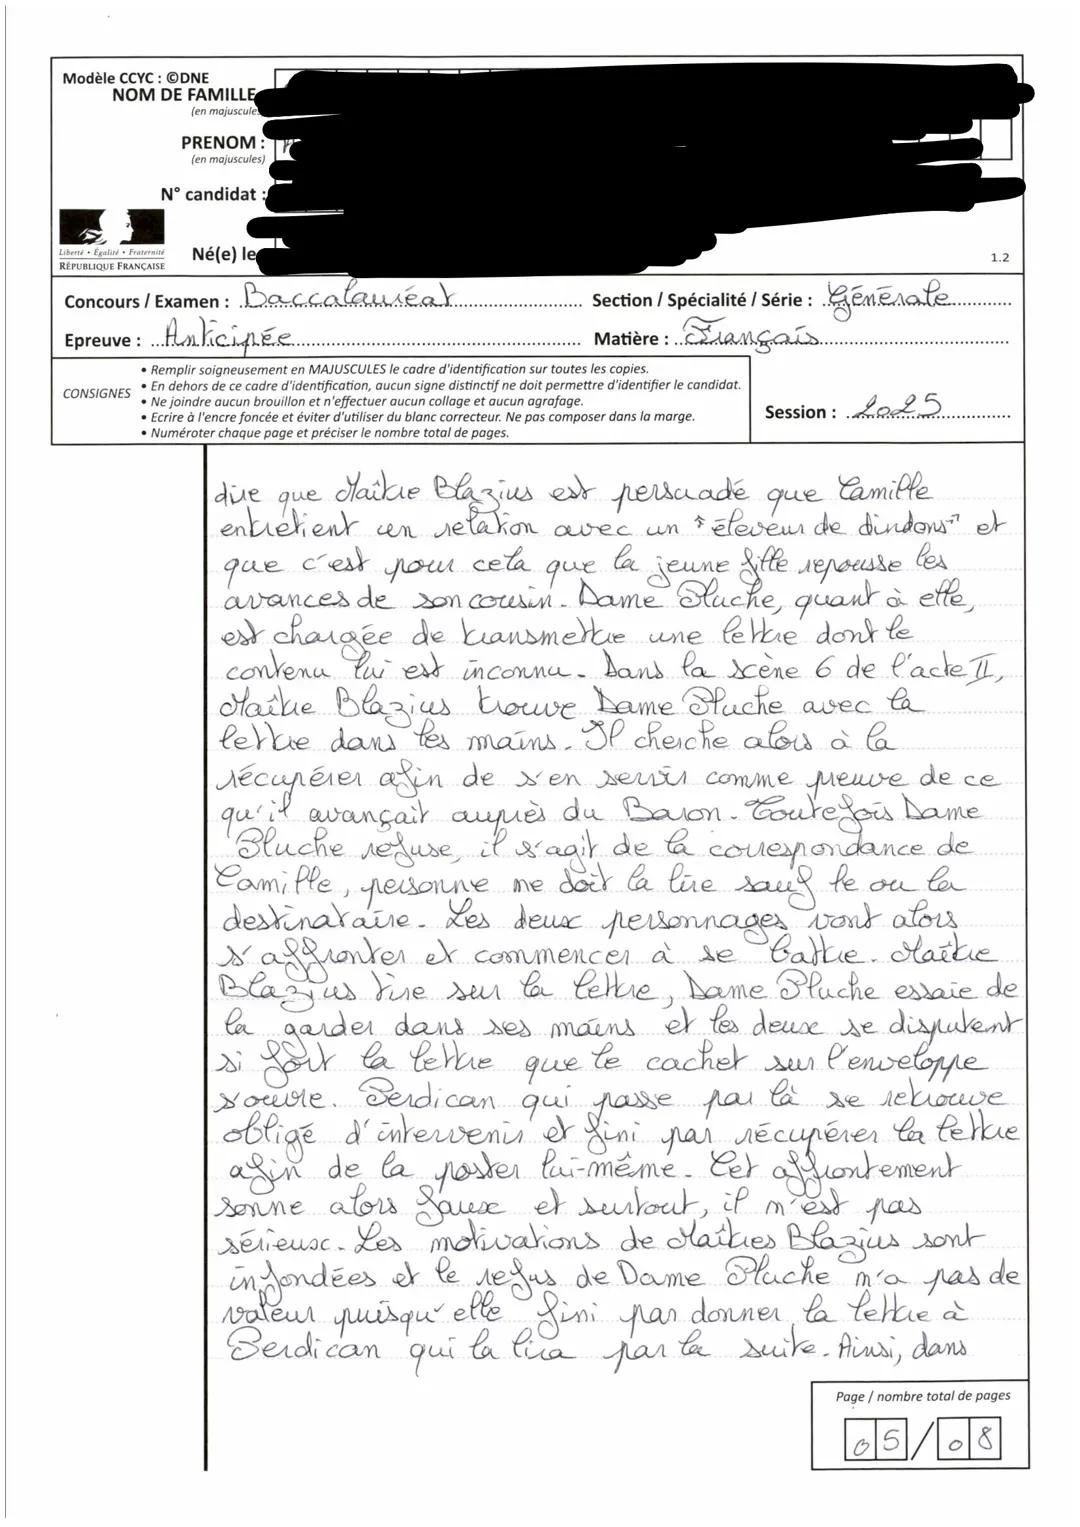 Modèle CCYC : ©DNE
NOM DE FAMILLE
(en majuscules
PRENOM :
(en majuscules)
N° candidat :
Né(e) le
Liberté • Égalité • Fraternité
RÉPUBLIQUE FRANÇAISE
1.2
Concours / Examen : Baccalauréat Section / Spécialité / Série : Générale
Epreuve : Anticipée Matière : Français
CONSIGNES
• Remplir soigneusement en MAJUSCULES le cadre d'identification sur toutes les copies.
• En dehors de ce cadre d'identification, aucun signe distinctif ne doit permettre d'identifier le candidat.
• Ne joindre aucun brouillon et n'effectuer aucun collage et aucun agrafage.
• Ecrire à l'encre foncée et éviter d'utiliser du blanc correcteur. Ne pas composer dans la marge.
• Numéroter chaque page et préciser le nombre total de pages.
Session : 2025
dire que Maître Blazius est persuadé que Camille
entretient un relation avec un "éleveur de dindons" et
que c'est pour cela que la jeune fille repousse les
avances de son cousin. Dame Pluche, quant à elle,
est chargée de transmettre une lettre dont le
contenu lui est inconnu. Dans la scène 6 de l'acte II,
Maître Blazius trouve Dame Pluche avec la
lettre dans les mains. Il cherche alors à la
récupérer afin de s'en servir comme preuve de ce
qu'il avançait auprès du Baron. Toutefois Dame
Pluche refuse, il s'agit de la correspondance de
Camille, personne ne doit la lire sauf le ou la
destinataire. Les deux personnages vont alors
s'affronter et commencer à se battre. Maître
Blazius tire sur la lettre, Dame Pluche essaie de
la garder dans ses mains et les deux se disputent
si fort la lettre que le cachet sur l'enveloppe
s'ouvre. Perdican qui passe par là se retrouve
obligé d'intervenir et fini par récupérer la lettre
afin de la poster lui-même. Cet affrontement
sonne alors faux et surtout, il n'est pas
sérieux. Les motivations de Maîtres Blazius sont
infondées et le refus de Dame Pluche n'a pas de
valeur puisqu'elle fini par donner la lettre à
Perdican qui la lira par la suite. Ainsi, dans
Page / nombre total de pages
05/08